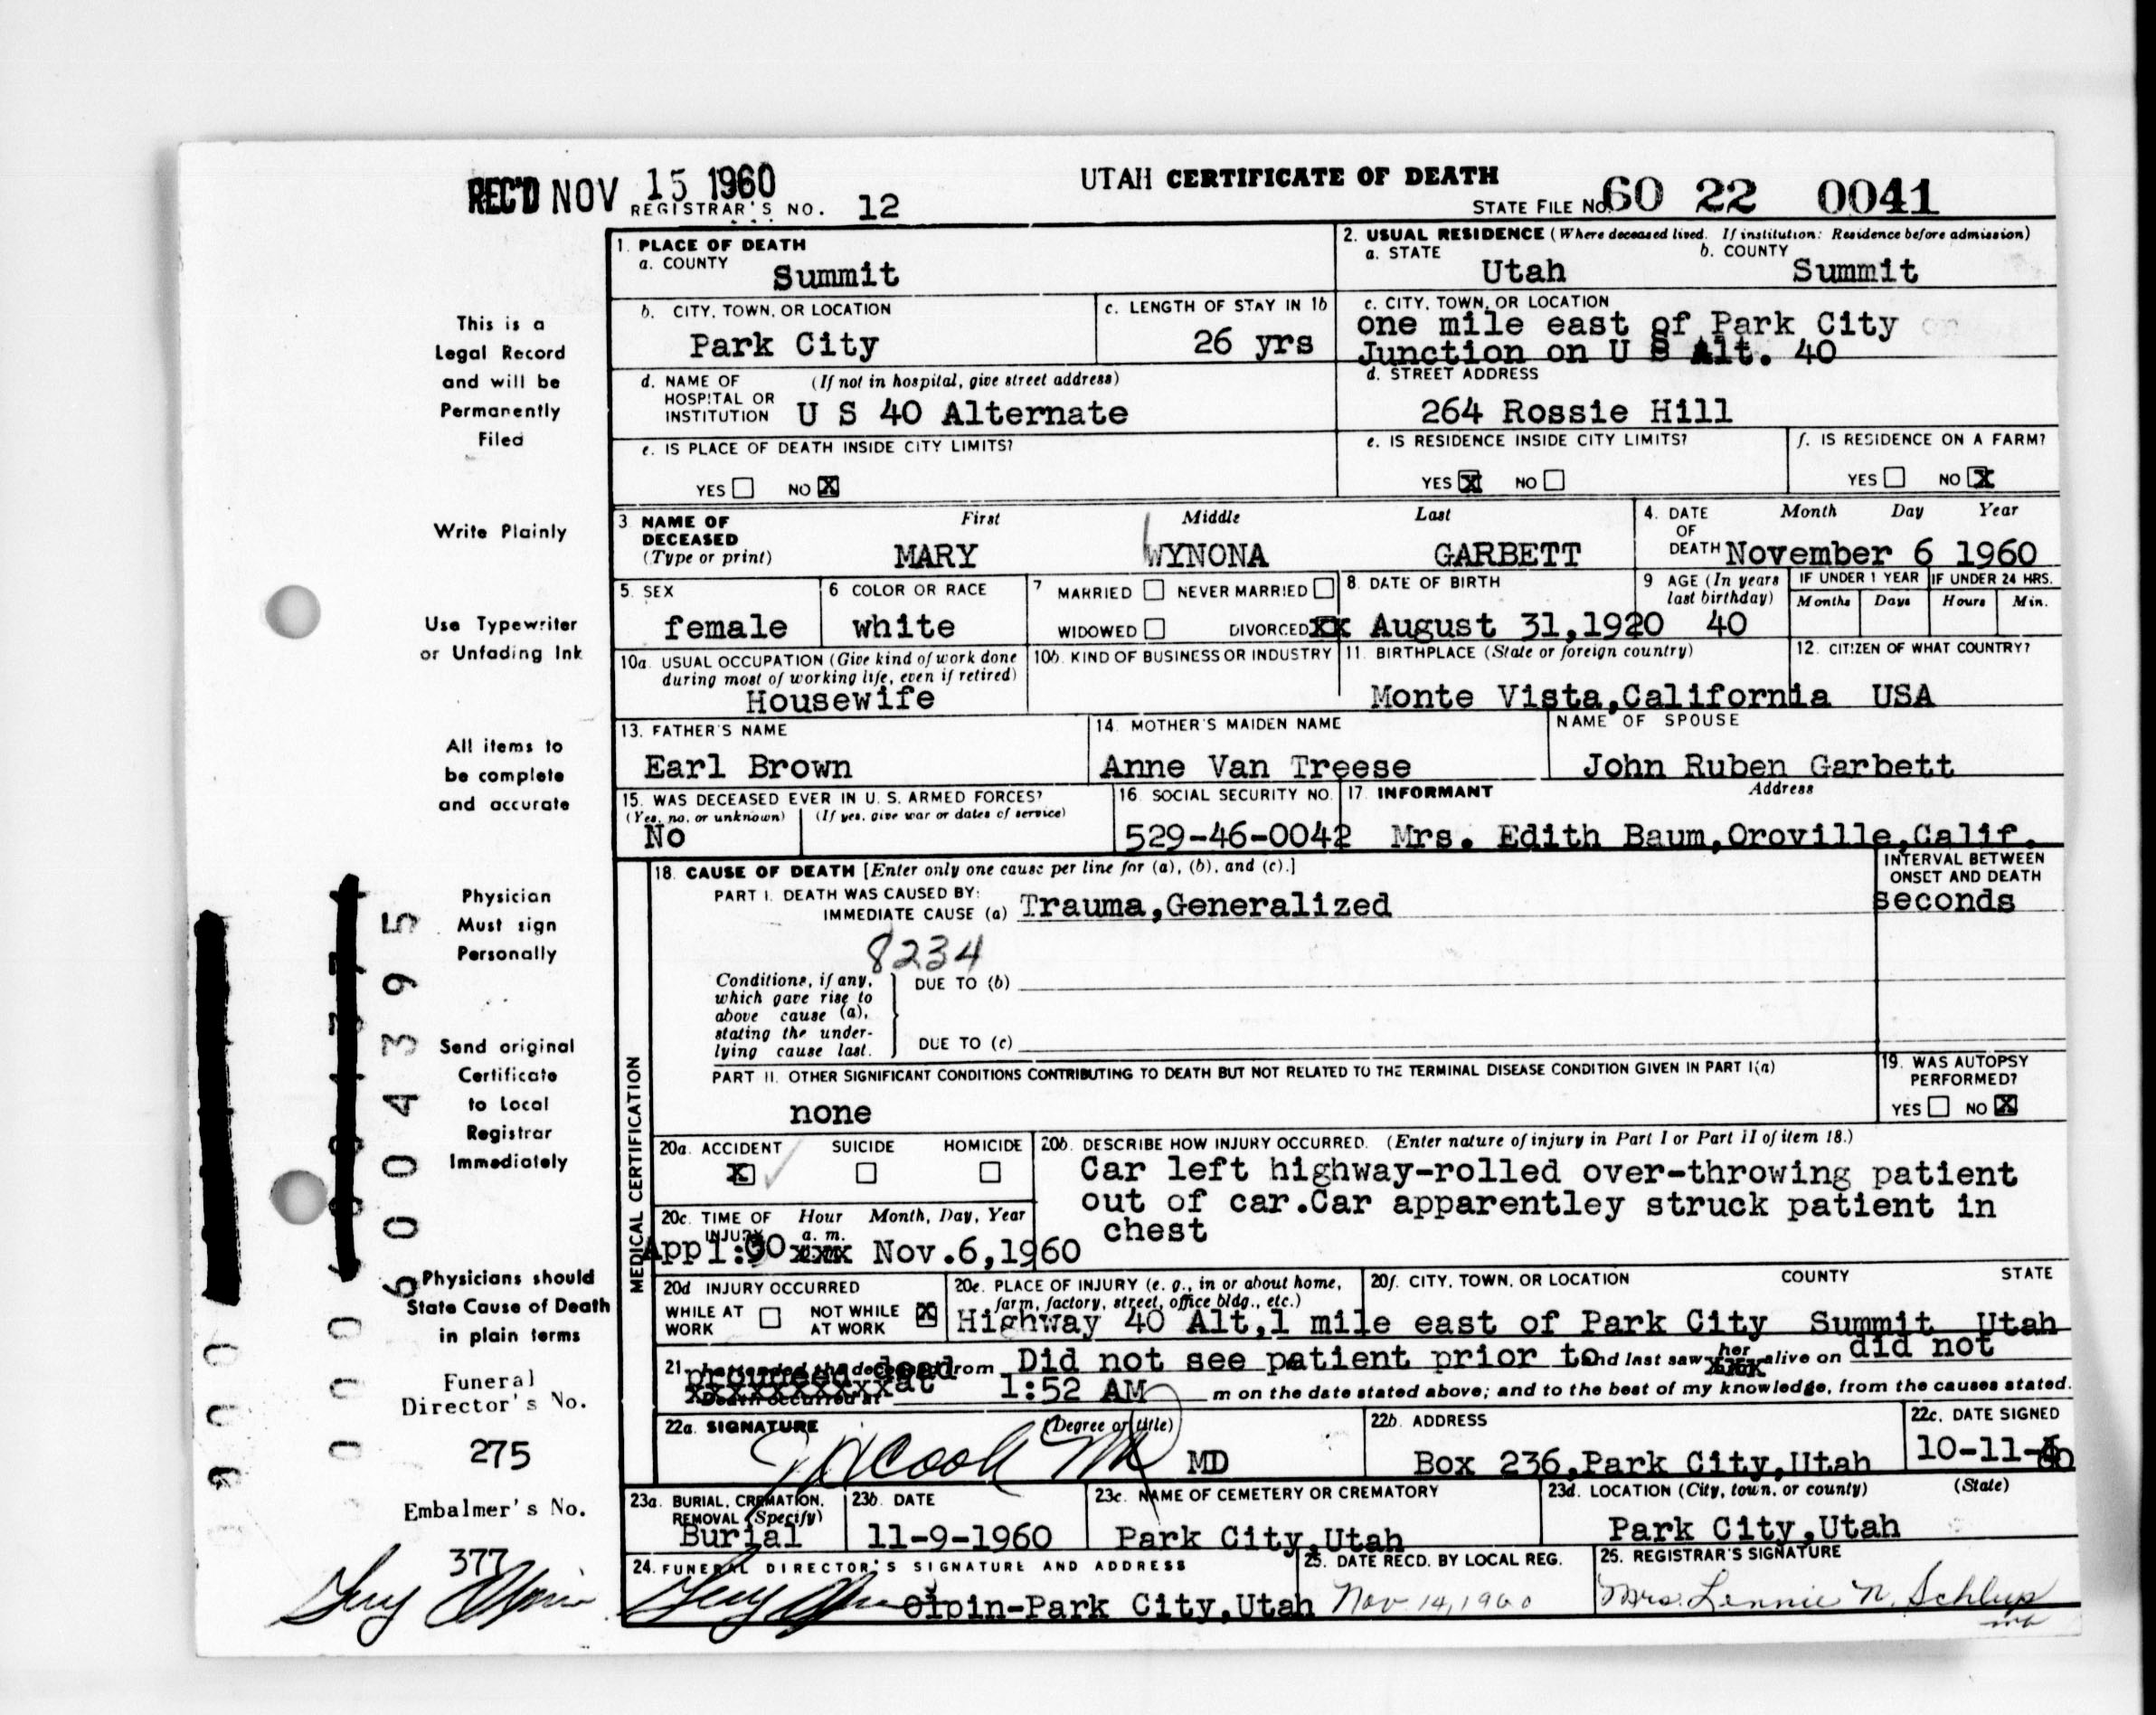 REC'D NOV 15 1960
REGISTRAR'S NO. 12
UTAH CERTIFICATE OF DEATH
STATE FILE NO. 60 22 0041
This is a
Legal Record
and will be
Permanently
Filed
Write Plainly
Use Typewriter
or Unfading Ink
All items to
be complete
and accurate
Physician
Must sign
Personally
Send original
Certificate
to Local
Registrar
Immediately
Physicians should
State Cause of Death
in plain terms
Funeral
Director's No.
275
Embalmer's No.
377
6004395
1. PLACE OF DEATH
a. COUNTY
Summit
2. USUAL RESIDENCE (Where deceased lived. If institution: Residence before admission)
a. STATE b. COUNTY
Utah Summit
b. CITY, TOWN, OR LOCATION
Park City
c. LENGTH OF STAY IN 1b
26 yrs
c. CITY, TOWN, OR LOCATION
one mile east of Park City on
Junction on U S Alt. 40
d. NAME OF (If not in hospital, give street address)
HOSPITAL OR
INSTITUTION U S 40 Alternate
d. STREET ADDRESS
264 Rossie Hill
e. IS PLACE OF DEATH INSIDE CITY LIMITS?
YES NO X
e. IS RESIDENCE INSIDE CITY LIMITS?
YES X NO
f. IS RESIDENCE ON A FARM?
YES NO X
3 NAME OF First Middle Last
DECEASED
(Type or print) MARY WYNONA GARBETT
4. DATE Month Day Year
OF
DEATH November 6 1960
5. SEX
female
6 COLOR OR RACE
white
7 MARRIED NEVER MARRIED
WIDOWED DIVORCED XX
8. DATE OF BIRTH
August 31,1920
9 AGE (In years
last birthday)
40
IF UNDER 1 YEAR IF UNDER 24 HRS.
Months Days Hours Min.
10a. USUAL OCCUPATION (Give kind of work done
during most of working life, even if retired)
Housewife
10b. KIND OF BUSINESS OR INDUSTRY
11. BIRTHPLACE (State or foreign country)
Monte Vista,California
12. CITIZEN OF WHAT COUNTRY?
USA
13. FATHER'S NAME
Earl Brown
14. MOTHER'S MAIDEN NAME
Anne Van Treese
NAME OF SPOUSE
John Ruben Garbett
15. WAS DECEASED EVER IN U. S. ARMED FORCES?
(Yes, no, or unknown) (If yes, give war or dates of service)
No
16. SOCIAL SECURITY NO.
529-46-0042
17. INFORMANT Address
Mrs. Edith Baum,Oroville,Calif.
MEDICAL CERTIFICATION
18. CAUSE OF DEATH [Enter only one cause per line for (a), (b), and (c).]
PART I. DEATH WAS CAUSED BY:
IMMEDIATE CAUSE (a) Trauma,Generalized
INTERVAL BETWEEN
ONSET AND DEATH
seconds
8234
Conditions, if any,
which gave rise to
above cause (a),
stating the under-
lying cause last.
DUE TO (b)
DUE TO (c)
PART II. OTHER SIGNIFICANT CONDITIONS CONTRIBUTING TO DEATH BUT NOT RELATED TO THE TERMINAL DISEASE CONDITION GIVEN IN PART I(a)
none
19. WAS AUTOPSY
PERFORMED?
YES NO X
20a. ACCIDENT SUICIDE HOMICIDE
X
20b. DESCRIBE HOW INJURY OCCURRED. (Enter nature of injury in Part I or Part II of item 18.)
Car left highway-rolled over-throwing patient
out of car.Car apparentley struck patient in
chest
20c. TIME OF Hour Month, Day, Year
INJURY a. m.
App 1:00 xxx Nov.6,1960
20d INJURY OCCURRED
WHILE AT WORK NOT WHILE AT WORK X
20e. PLACE OF INJURY (e. g., in or about home,
farm, factory, street, office bldg., etc.)
20f. CITY, TOWN, OR LOCATION COUNTY STATE
Highway 40 Alt,1 mile east of Park City Summit Utah
21. from Did not see patient prior to and last saw her alive on did not
prounced dead
xxxxxxxxxxxat 1:52 AM m on the date stated above; and to the best of my knowledge, from the causes stated.
22a. SIGNATURE (Degree or title)
MD
22b. ADDRESS
Box 236,Park City,Utah
22c. DATE SIGNED
10-11-60
23a. BURIAL, CREMATION,
REMOVAL (Specify)
Burial
23b. DATE
11-9-1960
23c. NAME OF CEMETERY OR CREMATORY
Park City,Utah
23d. LOCATION (City, town, or county) (State)
Park City,Utah
24. FUNERAL DIRECTOR'S SIGNATURE AND ADDRESS
Olpin-Park City,Utah
25. DATE RECD. BY LOCAL REG.
Nov 14, 1960
25. REGISTRAR'S SIGNATURE
Mrs. Lennie N. Schlup